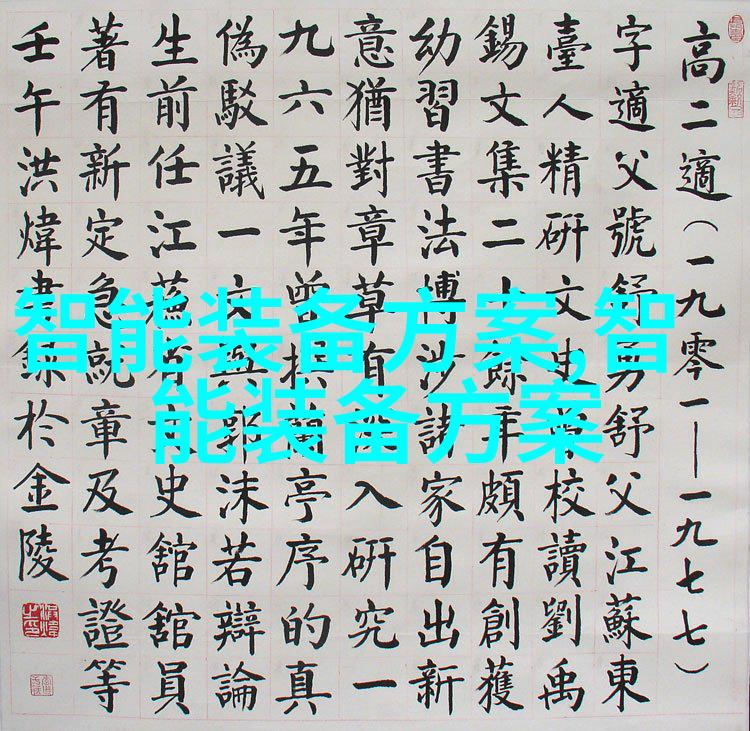 高二適（一九零一——一九七七）
字適父號舒舒父江蘇東
臺人精研文史曾校讀劉禹
錫文集二十餘年頗有創獲
幼習書法博涉諸家自出新
意猶對章草有深入研究一
九六五年曾撰蘭亭序的真
偽駁議一文與郭沫若辯論
生前任江蘇省文史館館員
著有新定急就章及考證等
壬午洪煒書錄於金陵
智能装备方案,智
能装备方案